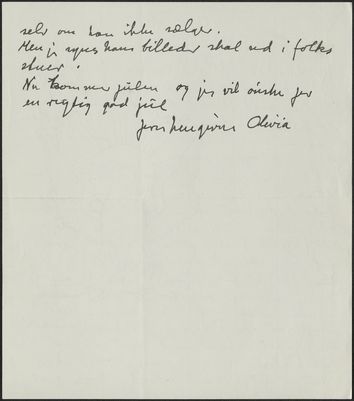 selv om han ikke sælger.
Men jeg synes hans billeder skal ud i folks
stuer.
Nu kommer julen og jeg vil ønske jer
en rigtig god jul
Jeres hengivne Olivia